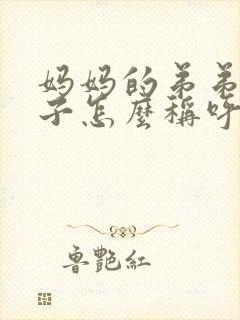 妈妈的弟弟
子怎麼稱呼
魯艷紅